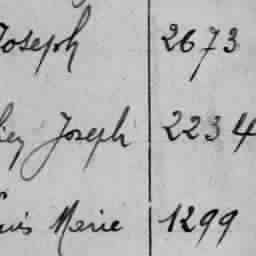 Joseph 2673
Joseph 2234
Marie 1299